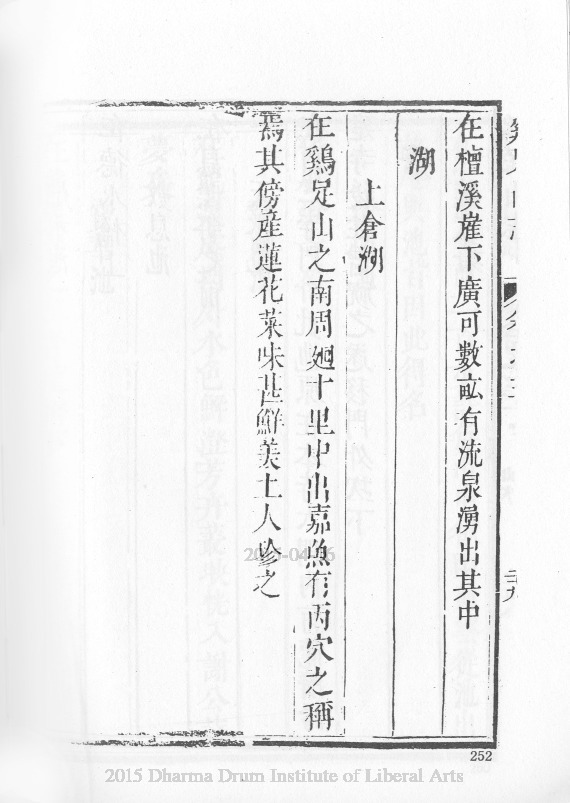 在檀溪崖下廣可數畝有流泉湧出其中
湖
上倉湖
在鷄足山之南周廻十里中出嘉魚有丙穴之稱
焉其傍產蓮花菜味甚鮮美土人珍之
252
2015 Dharma Drum Institute of Liberal Arts